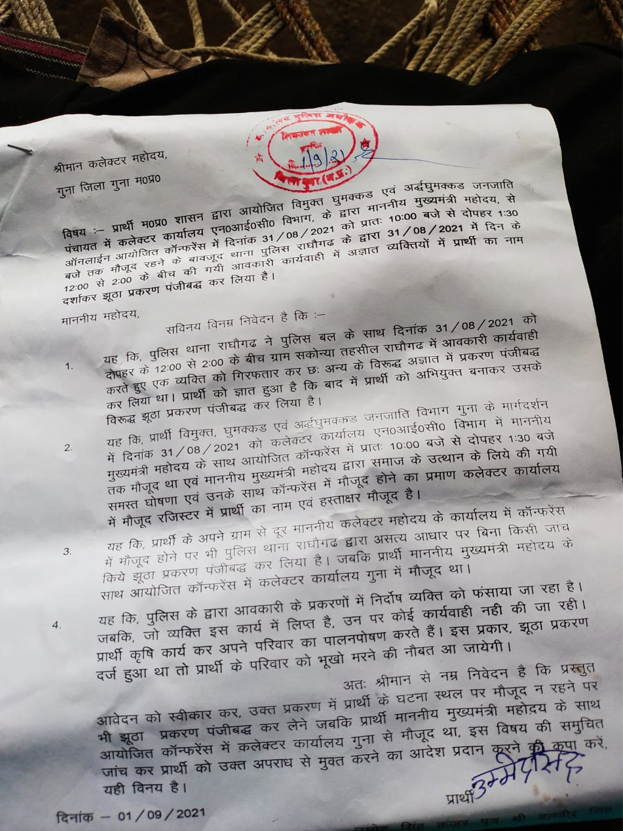 श्रीमान कलेक्टर महोदय,
गुना जिला गुना म0प्र0
1/9/21
विषय :– प्रार्थी म0प्र0 शासन द्वारा आयोजित विमुक्त घुमक्कड एवं अर्द्धघुमक्कड जनजाति
पंचायत में कलेक्टर कार्यालय एन0आई0सी0 विभाग, के द्वारा माननीय मुख्यमंत्री महोदय, से
ऑनलाईन आयोजित कॉन्फरेंस में दिनांक 31/08/2021 को प्रातः 10:00 बजे से दोपहर 1:30
बजे तक मौजूद रहने के बावजूद थाना पुलिस राघौगढ के द्वारा 31/08/2021 में दिन के
12:00 से 2:00 के बीच की गयी आवकारी कार्यवाही में अज्ञात व्यक्तियों में प्रार्थी का नाम
दर्शाकर झूठा प्रकरण पंजीबद्ध कर लिया है।
माननीय महोदय,
सविनय विनम्र निवेदन है कि :–
1. यह कि, पुलिस थाना राघौगढ ने पुलिस बल के साथ दिनांक 31/08/2021 को
दोपहर के 12:00 से 2:00 के बीच ग्राम सकोन्या तहसील राघौगढ में आवकारी कार्यवाही
करते हुए एक व्यक्ति को गिरफतार कर छः अन्य के विरूद्ध अज्ञात में प्रकरण पंजीबद्ध
कर लिया था। प्रार्थी को ज्ञात हुआ है कि बाद में प्रार्थी को अभियुक्त बनाकर उसके
विरूद्ध झूठा प्रकरण पंजीबद्ध कर लिया है।
2. यह कि, प्रार्थी विमुक्त, घुमक्कड एवं अर्द्धघुमक्कड जनजाति विभाग गुना के मार्गदर्शन
में दिनांक 31/08/2021 को कलेक्टर कार्यालय एन0आई0सी0 विभाग में माननीय
मुख्यमंत्री महोदय के साथ आयोजित कॉन्फरेंस में प्रातः 10:00 बजे से दोपहर 1:30 बजे
तक मौजूद था एवं माननीय मुख्यमंत्री महोदय द्वारा समाज के उत्थान के लिये की गयी
समस्त घोषणा एवं उनके साथ कॉन्फरेंस में मौजूद होने का प्रमाण कलेक्टर कार्यालय
में मौजूद रजिस्टर में प्रार्थी का नाम एवं हस्ताक्षर मौजूद है।
3. यह कि, प्रार्थी के अपने ग्राम से दूर माननीय कलेक्टर महोदय के कार्यालय में कॉन्फरेंस
में मौजूद होने पर भी पुलिस थाना राघौगढ द्वारा असत्य आधार पर बिना किसी जांच
किये झूठा प्रकरण पंजीबद्ध कर लिया है। जबकि प्रार्थी माननीय मुख्यमंत्री महोदय के
साथ आयोजित कॉन्फरेंस में कलेक्टर कार्यालय गुना में मौजूद था।
4. यह कि, पुलिस के द्वारा आवकारी के प्रकरणों में निर्दोष व्यक्ति को फंसाया जा रहा है।
जबकि, जो व्यक्ति इस कार्य में लिप्त है, उन पर कोई कार्यवाही नही की जा रही।
प्रार्थी कृषि कार्य कर अपने परिवार का पालनपोषण करते हैं। इस प्रकार, झूठा प्रकरण
दर्ज हुआ था तो प्रार्थी के परिवार को भूखो मरने की नौबत आ जायेगी।
अतः श्रीमान से नम्र निवेदन है कि प्रस्तुत
आवेदन को स्वीकार कर, उक्त प्रकरण में प्रार्थी के घटना स्थल पर मौजूद न रहने पर
भी झूठा प्रकरण पंजीबद्ध कर लेने जबकि प्रार्थी माननीय मुख्यमंत्री महोदय के साथ
आयोजित कॉन्फरेंस में कलेक्टर कार्यालय गुना से मौजूद था, इस विषय की समुचित
जांच कर प्रार्थी को उक्त अपराध से मुक्त करने का आदेश प्रदान करने की कृपा करें,
यही विनय है।
उम्मेदसिंह
प्रार्थी
दिनांक – 01/09/2021